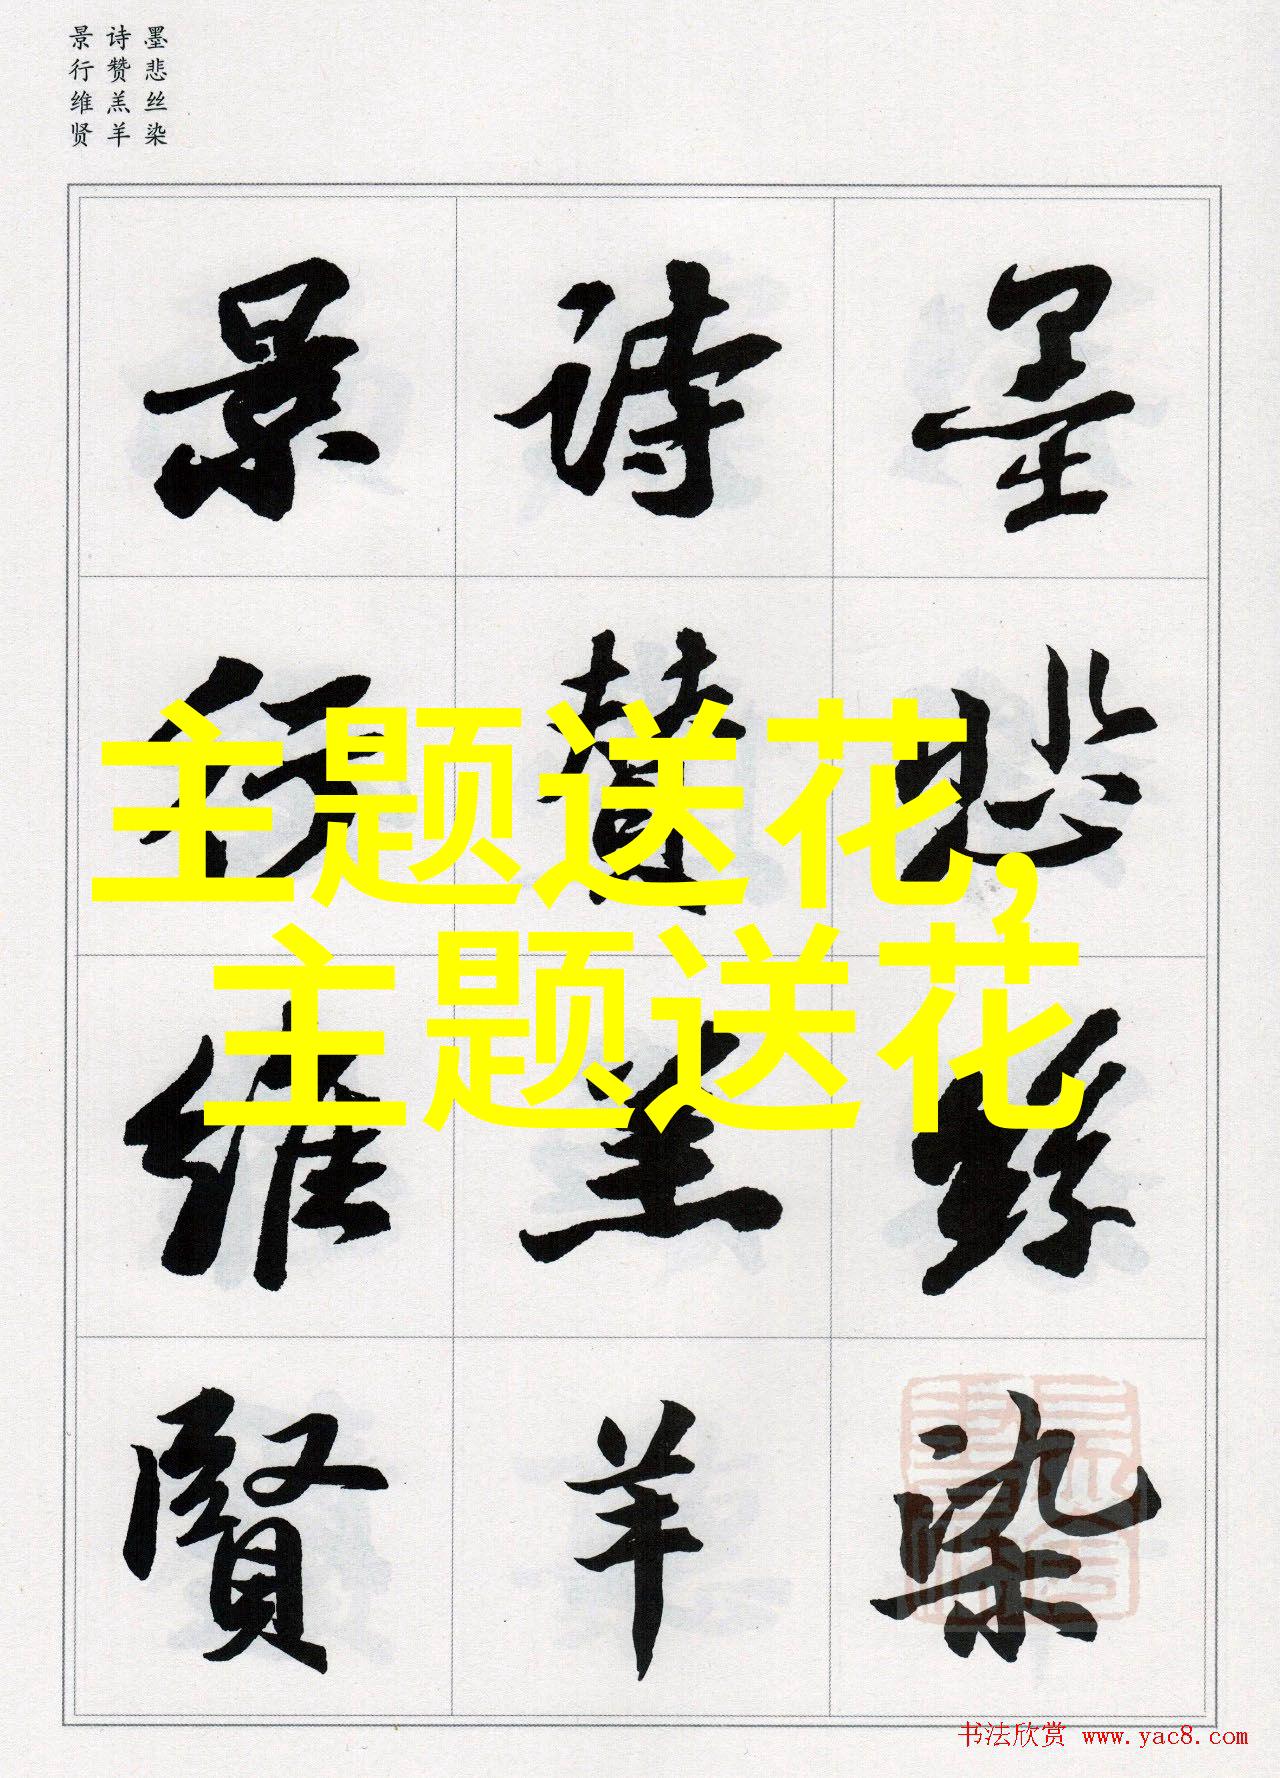 墨悲丝染
诗赞羔羊
景行维贤
墨悲絲染
詩贊羔羊
景行維賢
主题送花,
主题送花
书法欣赏 www.yac8.com